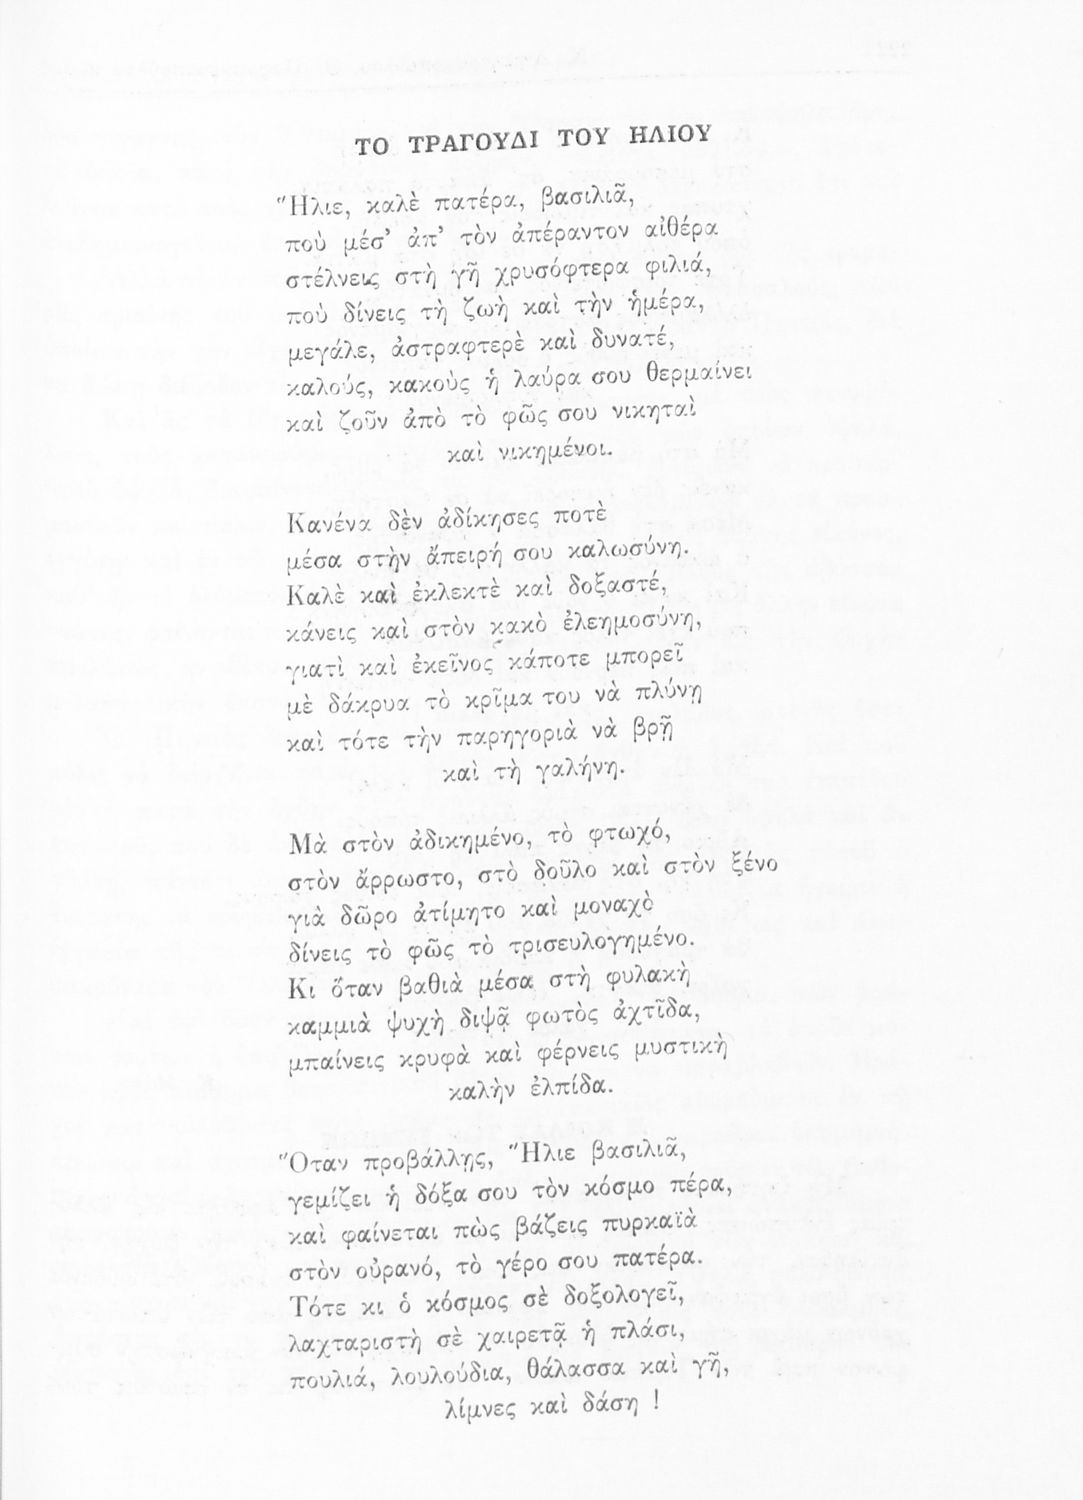 ΤΟ ΤΡΑΓΟΥΔΙ ΤΟΥ ΗΛΙΟΥ
Ἥλιε, καλὲ πατέρα, βασιλιᾶ,
ποὺ μέσ’ ἀπ’ τὸν ἀπέραντον αἰθέρα
στέλνεις στὴ γῆ χρυσόφτερα φιλιά,
ποὺ δίνεις τὴ ζωὴ καὶ τὴν ἡμέρα,
μεγάλε, ἀστραφτερὲ καὶ δυνατέ,
καλούς, κακοὺς ἡ λαύρα σου θερμαίνει
καὶ ζοῦν ἀπὸ τὸ φῶς σου νικηταὶ
καὶ νικημένοι.
Κανένα δὲν ἀδίκησες ποτὲ
μέσα στὴν ἄπειρή σου καλωσύνη.
Καλὲ καὶ ἐκλεκτὲ καὶ δοξαστέ,
κάνεις καὶ στὸν κακὸ ἐλεημοσύνη,
γιατὶ καὶ ἐκεῖνος κάποτε μπορεῖ
μὲ δάκρυα τὸ κρῖμα του νὰ πλύνῃ
καὶ τότε τὴν παρηγοριὰ νὰ βρῇ
καὶ τὴ γαλήνη.
Μὰ στὸν ἀδικημένο, τὸ φτωχό,
στὸν ἄρρωστο, στὸ δοῦλο καὶ στὸν ξένο
γιὰ δῶρο ἀτίμητο καὶ μοναχὸ
δίνεις τὸ φῶς τὸ τρισευλογημένο.
Κι ὅταν βαθιὰ μέσα στὴ φυλακὴ
καμμιὰ ψυχὴ διψᾷ φωτὸς ἀχτῖδα,
μπαίνεις κρυφὰ καὶ φέρνεις μυστικὴ
καλὴν ἐλπίδα.
Ὅταν προβάλλῃς, Ἥλιε βασιλιᾶ,
γεμίζει ἡ δόξα σου τὸν κόσμο πέρα,
καὶ φαίνεται πὼς βάζεις πυρκαϊὰ
στὸν οὐρανό, τὸ γέρο σου πατέρα.
Τότε κι ὁ κόσμος σὲ δοξολογεῖ,
λαχταριστὴ σὲ χαιρετᾷ ἡ πλάσι,
πουλιά, λουλούδια, θάλασσα καὶ γῆ,
λίμνες καὶ δάση !